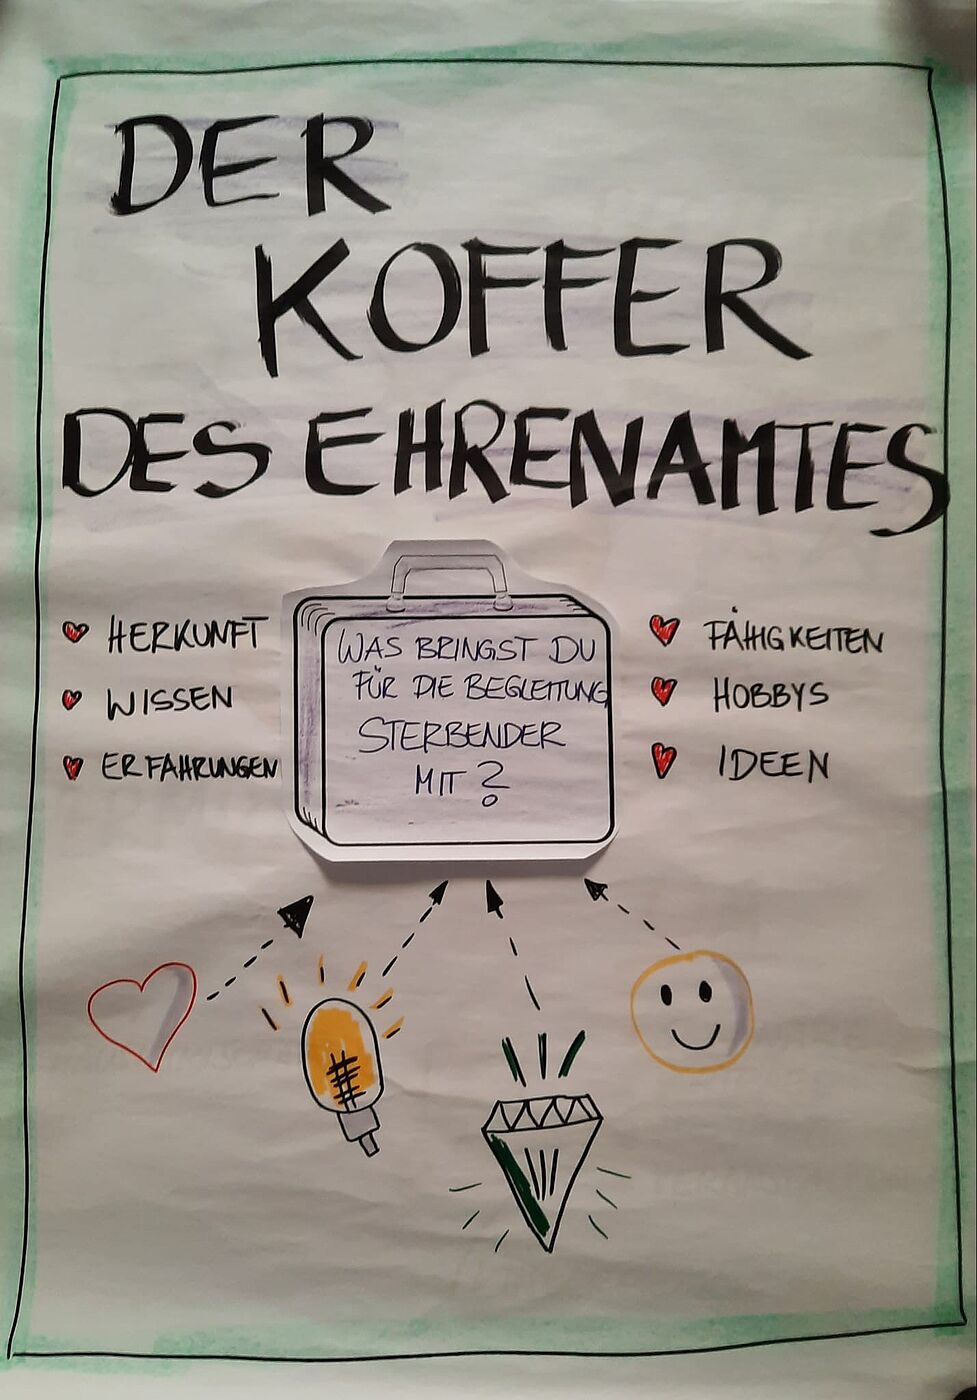 DER
KOFFER
DES EHRENAMTES
HERKUNFT
WISSEN
ERFAHRUNGEN
WAS BRINGST DU
FÜR DIE BEGLEITUNG
STERBENDER
MIT?
FÄHIGKEITEN
HOBBYS
IDEEN